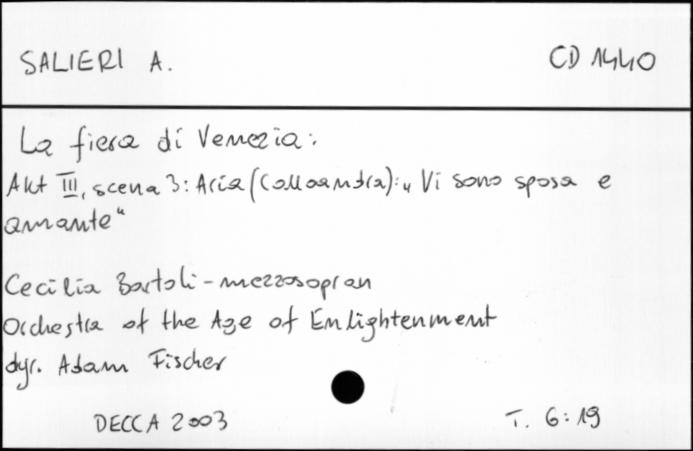 SALIERI A.
CD 1440
La fiera di Venezia:
Akt III, scena 3: Aria (Calloandra): „Vi sono sposa e
amante"
Cecilia Bartoli - mezzosopran
Orchestra of the Age of Enlightenment
dyr. Adam Fischer
DECCA 2003
T. 6:19